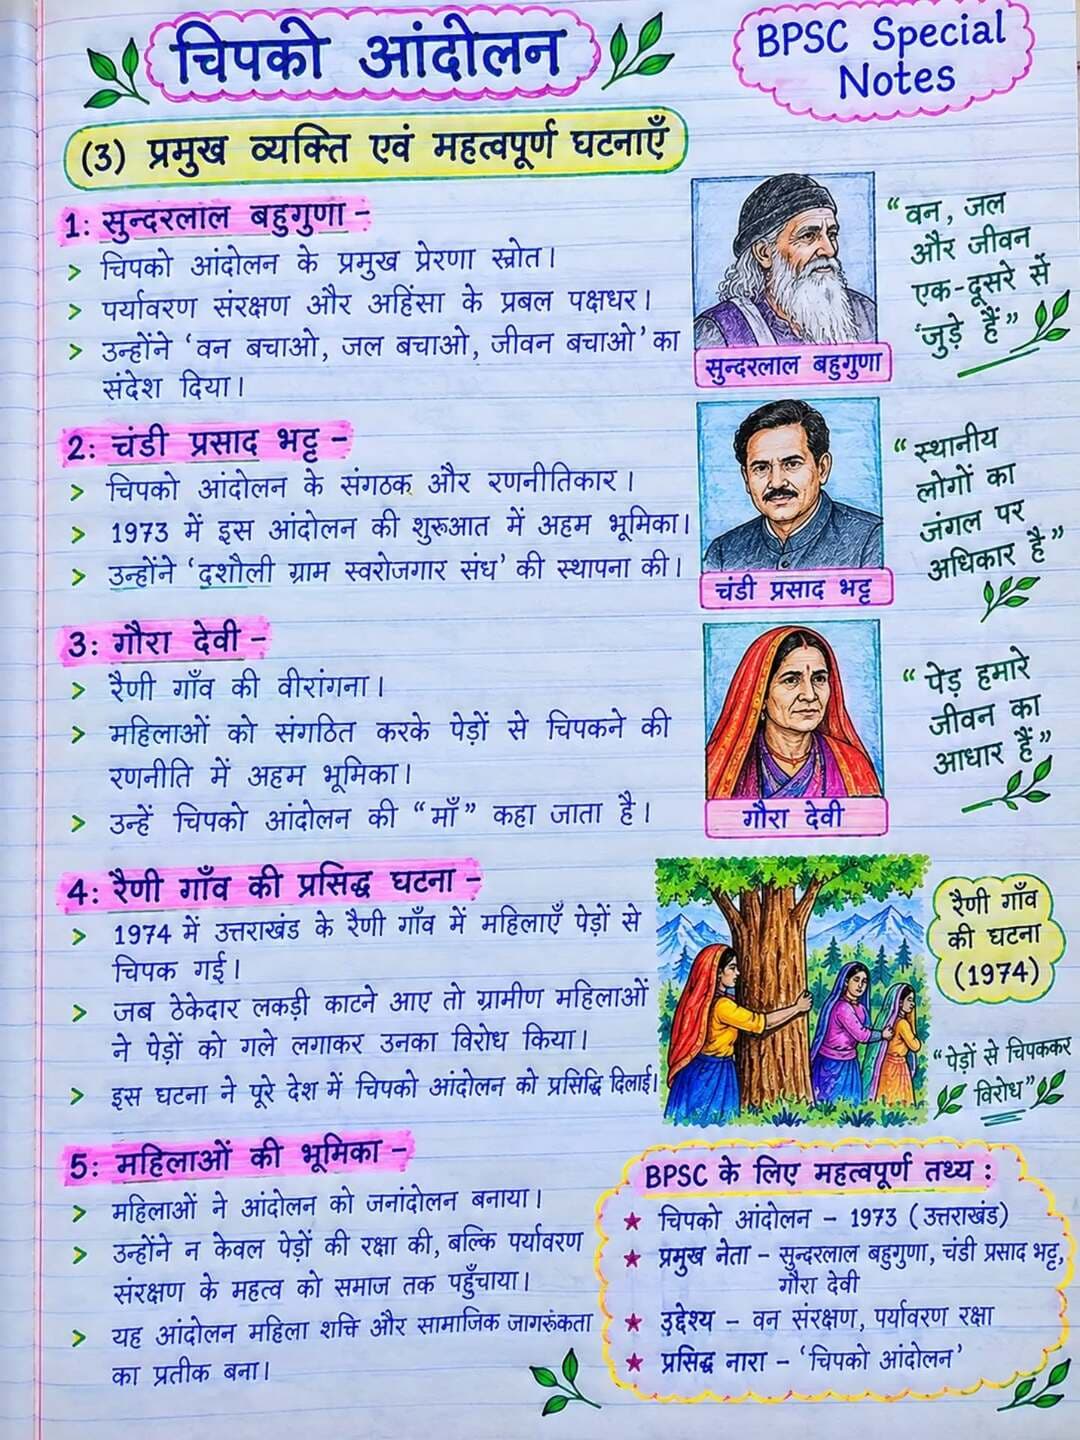 चिपको आंदोलन
BPSC Special
Notes
(3) प्रमुख व्यक्ति एवं महत्वपूर्ण घटनाएँ
1: सुन्दरलाल बहुगुणा -
> चिपको आंदोलन के प्रमुख प्रेरणा स्रोत।
> पर्यावरण संरक्षण और अहिंसा के प्रबल पक्षधर।
> उन्होंने 'वन बचाओ, जल बचाओ, जीवन बचाओ' का
संदेश दिया।
सुन्दरलाल बहुगुणा
"वन, जल
और जीवन
एक-दूसरे से
'जुड़े हैं"
2: चंडी प्रसाद भट्ट -
> चिपको आंदोलन के संगठक और रणनीतिकार।
> 1973 में इस आंदोलन की शुरुआत में अहम भूमिका।
> उन्होंने 'दशौली ग्राम स्वरोजगार संघ' की स्थापना की।
चंडी प्रसाद भट्ट
"स्थानीय
लोगों का
जंगल पर
अधिकार है"
3: गौरा देवी -
> रैणी गाँव की वीरांगना।
> महिलाओं को संगठित करके पेड़ों से चिपकने की
रणनीति में अहम भूमिका।
> उन्हें चिपको आंदोलन की "माँ" कहा जाता है।
गौरा देवी
"पेड़ हमारे
जीवन का
आधार हैं"
4: रैणी गाँव की प्रसिद्ध घटना -
> 1974 में उत्तराखंड के रैणी गाँव में महिलाएँ पेड़ों से
चिपक गई।
> जब ठेकेदार लकड़ी काटने आए तो ग्रामीण महिलाओं
ने पेड़ों को गले लगाकर उनका विरोध किया।
> इस घटना ने पूरे देश में चिपको आंदोलन को प्रसिद्धि दिलाई।
रैणी गाँव
की घटना
(1974)
"पेड़ों से चिपककर
विरोध"
5: महिलाओं की भूमिका -
> महिलाओं ने आंदोलन को जनांदोलन बनाया।
> उन्होंने न केवल पेड़ों की रक्षा की, बल्कि पर्यावरण
संरक्षण के महत्व को समाज तक पहुँचाया।
> यह आंदोलन महिला शक्ति और सामाजिक जागरूकता
का प्रतीक बना।
BPSC के लिए महत्वपूर्ण तथ्य :
★ चिपको आंदोलन - 1973 (उत्तराखंड)
★ प्रमुख नेता - सुन्दरलाल बहुगुणा, चंडी प्रसाद भट्ट,
गौरा देवी
★ उद्देश्य - वन संरक्षण, पर्यावरण रक्षा
★ प्रसिद्ध नारा - 'चिपको आंदोलन'